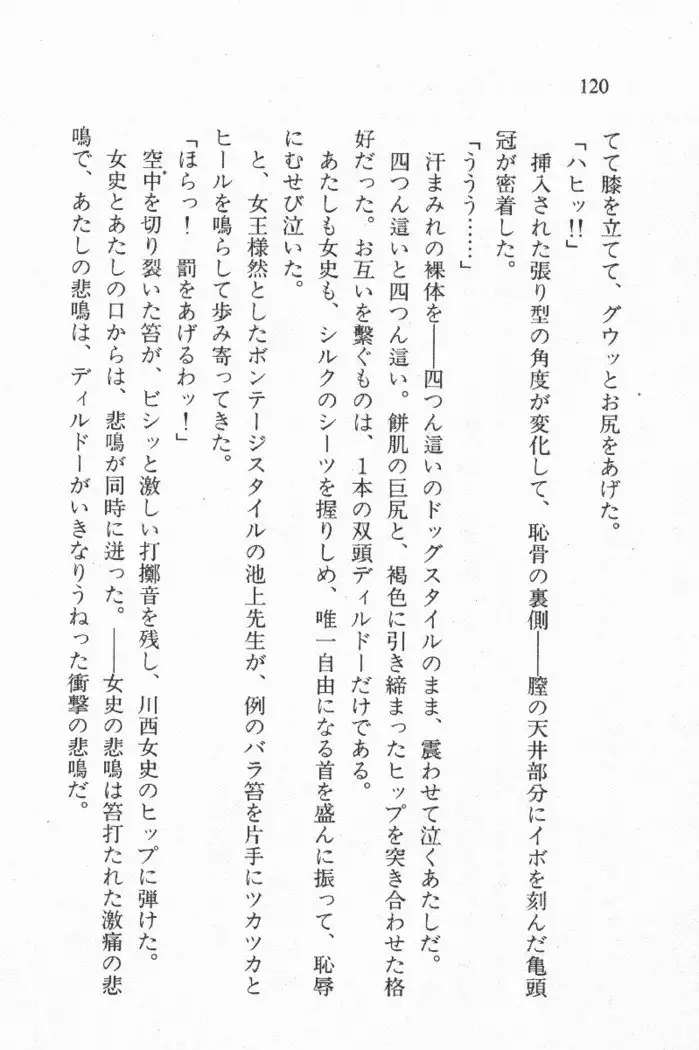 120
てて膝を立てて、グウッとお尻をあげた。
「ハヒッ!!」
挿入された張り型の角度が変化して、恥骨の裏側――膣の天井部分にイボを刻んだ亀頭
冠が密着した。
「ううう……」
汗まみれの裸体を――四つん這いのドッグスタイルのまま、震わせて泣くあたしだ。
四つん這いと四つん這い。餅肌の巨尻と、褐色に引き締まったヒップを突き合わせた格
好だった。お互いを繋ぐものは、1本の双頭ディルドーだけである。
あたしも女史も、シルクのシーツを握りしめ、唯一自由になる首を盛んに振って、恥辱
にむせび泣いた。
と、女王様然としたボンテージスタイルの池上先生が、例のバラ笞を片手にツカツカと
ヒールを鳴らして歩み寄ってきた。
「ほらっ！　罰をあげるわッ！」
空中を切り裂いた笞が、ビシッと激しい打擲音を残し、川西女史のヒップに弾けた。
女史とあたしの口からは、悲鳴が同時に迸った。――女史の悲鳴は笞打たれた激痛の悲
鳴で、あたしの悲鳴は、ディルドーがいきなりうねった衝撃の悲鳴だ。